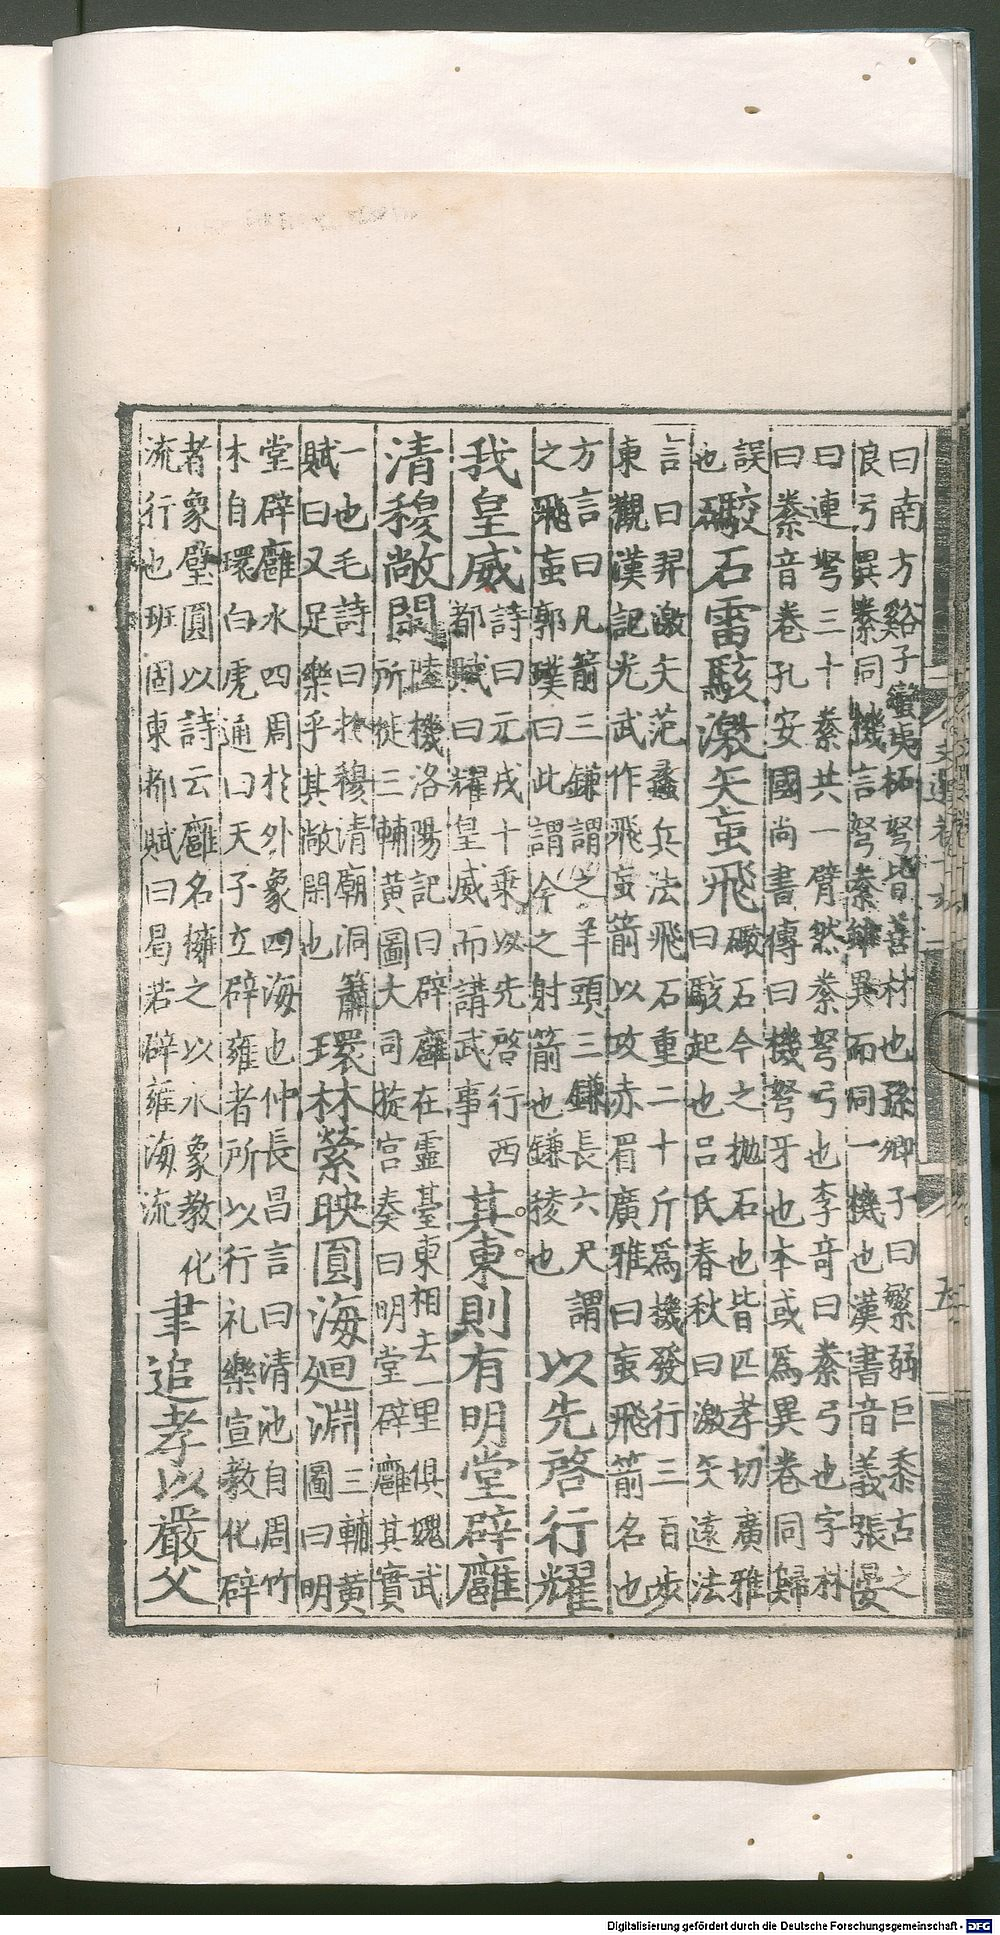 曰南方谿子蠻夷柘弩皆善材也孫卿子曰繁弱巨黍古之
良弓異絭同機言弩絭雖異而同一機也漢書音義張晏
曰連弩三十絭共一臂然絭弩弓也李奇曰絭弓也字林
曰絭音卷孔安國尚書傳曰機弩牙也本或爲異卷同歸
誤
也
礮石雷駭激矢䖟飛
礮石今之拋石也皆匹孝切廣雅
曰駭起也吕氏春秋曰激矢遠法
言曰羿激矢范蠡兵法飛石重二十斤爲機發行三百步
東觀漢記光武作飛䖟箭以攻赤眉廣雅曰䖟飛箭名也
方言曰凡箭三鎌謂之羊頭三鎌長六尺謂
之飛䖟郭璞曰此謂今之射箭也鎌稜也
以先啓行耀
我皇威
詩曰元戎十乘以先啓行西
都賦曰耀皇威而講武事
其東則有明堂辟廱
清穆敞閑
陸機洛陽記曰辟廱在靈臺東相去一里俱魏武
所徙三輔黃圖大司徒宮奏曰明堂辟廱其實
一也毛詩曰於穆清廟洞簫
賦曰又足樂乎其敞閑也
環林縈映圓海廻淵
三輔黃
圖曰明
堂辟廱水四周於外象四海也仲長昌言曰清池自周竹
木自環白虎通曰天子立辟雍者所以行礼樂宣教化辟
者象璧圓以詩云廱名擁之以水象教化
流行也班固東都賦曰曷若辟雍海流
聿追孝以嚴父
文選卷十六
五
Digitalisierung gefördert durch die Deutsche Forschungsgemeinschaft - DFG